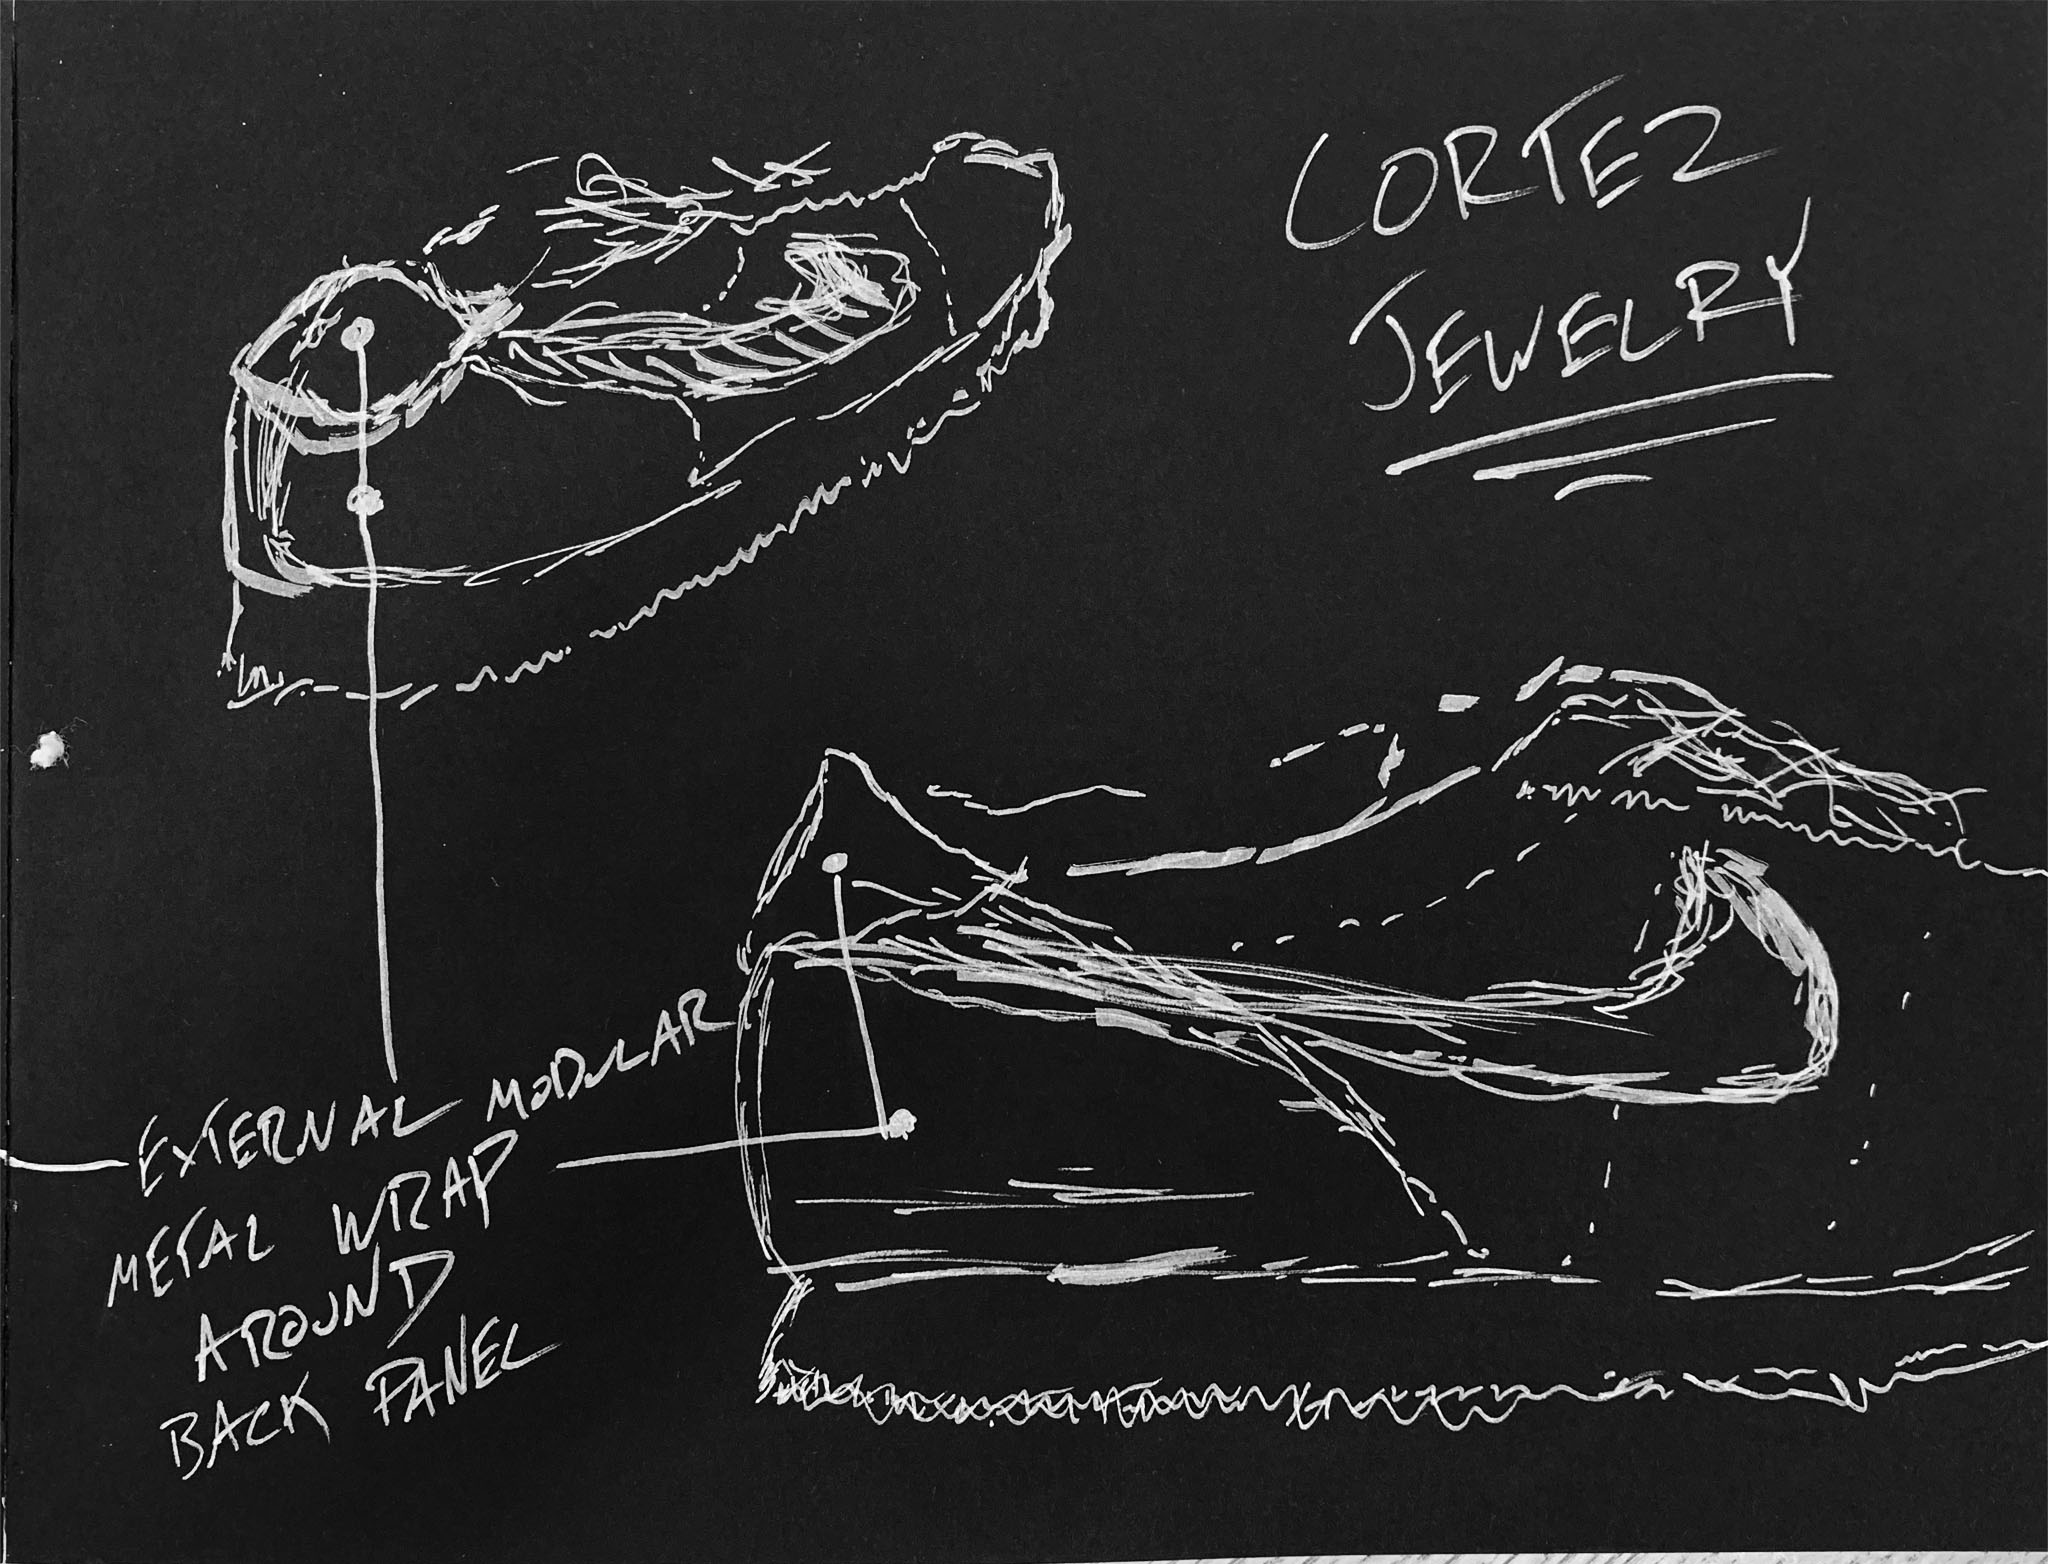 CORTEZ
JEWELRY
EXTERNAL MODULAR
METAL WRAP
AROUND
BACK PANEL